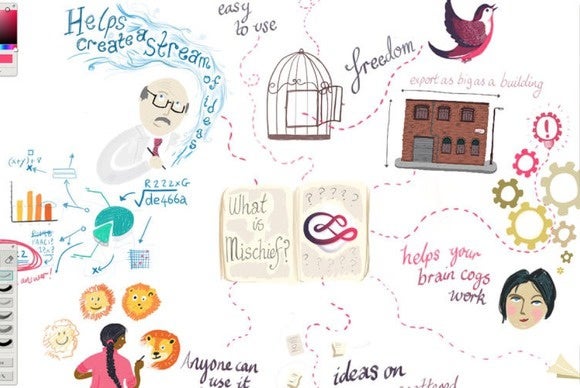 Helps
create a stream
of ideas
easy
to use
freedom
export as big as a building
R222xG
√de466a
What
is
Mischief?
? ? ? ?
helps your
brain cogs
work
answer!
Anyone can
use it
ideas on